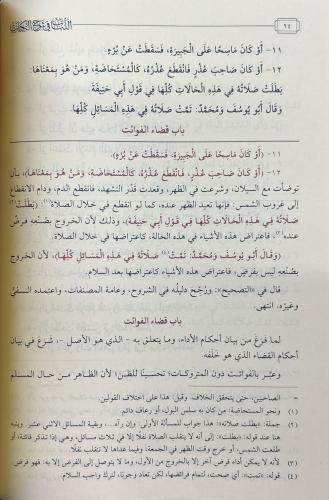 ٩٤
اللباب في شرح الكتاب
١١- أَوْ كَانَ مَاسِحًا عَلَى الْجَبِيرَةِ، فَسَقَطَتْ عَنْ بُرْءٍ.
١٢- أَوْ كَانَ صَاحِبَ عُذْرٍ فَانْقَطَعَ عُذْرُهُ، كَالْمُسْتَحَاضَةِ، وَمَنْ هُوَ بِمَعْنَاهَا:
بَطَلَتْ صَلَاتُهُ فِي هٰذِهِ الْحَالَاتِ كُلِّهَا فِي قَوْلِ أَبِي حَنِيفَةَ.
وَقَالَ أَبُو يُوسُفَ وَمُحَمَّدٌ: تَمَّتْ صَلَاتُهُ فِي هٰذِهِ الْمَسَائِلِ كُلِّهَا.
باب قضاء الفوائت
١١- (أَوْ كَانَ مَاسِحًا عَلَى الْجَبِيرَةِ، فَسَقَطَتْ عَنْ بُرْءٍ).
١٢- (أَوْ كَانَ صَاحِبَ عُذْرٍ فَانْقَطَعَ عُذْرُهُ، كَالْمُسْتَحَاضَةِ، وَمَنْ هُوَ بِمَعْنَاهَا)، بأن
توضأت مع السيلان، وشرعت في الظهر، وقعدت قدْر التشهد، فانقطع الدم، ودام الانقطاع
إلى غروب الشمس: فإنها تعيد الظهر عنده، كما لو انقطع في خلال الصلاة: (بَطَلَتْ
صَلَاتُهُ فِي هٰذِهِ الْحَالَاتِ كُلِّهَا فِي قَوْلِ أَبِي حَنِيفَةَ)، وذلك لأن الخروج بصُنعه فرضٌ
عنده(٣)، فاعتراض هذه الأشياء في هذه الحالة، كاعتراضها في خلال الصلاة.
(وَقَالَ أَبُو يُوسُفَ وَمُحَمَّدٌ: تَمَّتْ(٤) صَلَاتُهُ فِي هٰذِهِ الْمَسَائِلِ كُلِّهَا)، لأن الخروج
بصُنعه ليس بفرضٍ، فاعتراض هذه الأشياء كاعتراضها بعد السلام.
قال في «التصحيح»: ورُجِّح دليلُه في الشروح، وعامة المصنفات، واعتمده النسفيُّ
وغيرُه. انتهى.
باب قضاء الفوائت
لما فرَغَ من بيان أحكام الأداء، وما يتعلق به - الذي هو الأصل -، شرَعَ في بيان
أحكام القضاء الذي هو خَلَفه.
وعبَّر بالفوائت دون المتروكات؛ تحسينًا للظن؛ لأن الظاهر من حال المسلم
= الصاحبين، حتى يتحقق الخلاف. وقيل: هذا على اختلاف القولين.
(١) ونحو المستحاضة: من كان به سلس البول، أو رعاف دائم.
(٢) جملة: «بطلت صلاته»: هذا جواب للمسألة الأولى: وإن رأى...، وبقية المسائل الاثني عشر. وينبه
هنا عند قوله: «بطلت»: إلى أنه لا يقلب الصلاة نفلًا إلا في ثلاث مسائل، وهي إذا تذكر فائتة، أو
طلعت الشمس، أو خرج وقت الظهر في الجمعة، وفيما عداها لا تنقلب نفلًا.
(٣) لأنه لا يمكن أداء فرضٍ آخر إلا بالخروج من الأول، وما لا يتوصل إلى الفرض إلا به: فهو فرض.
(٤) قوله: «تمت»: أي صحت، لتمام فرائضها، لكن تعاد وجوبًا، لترك واجب السلام.